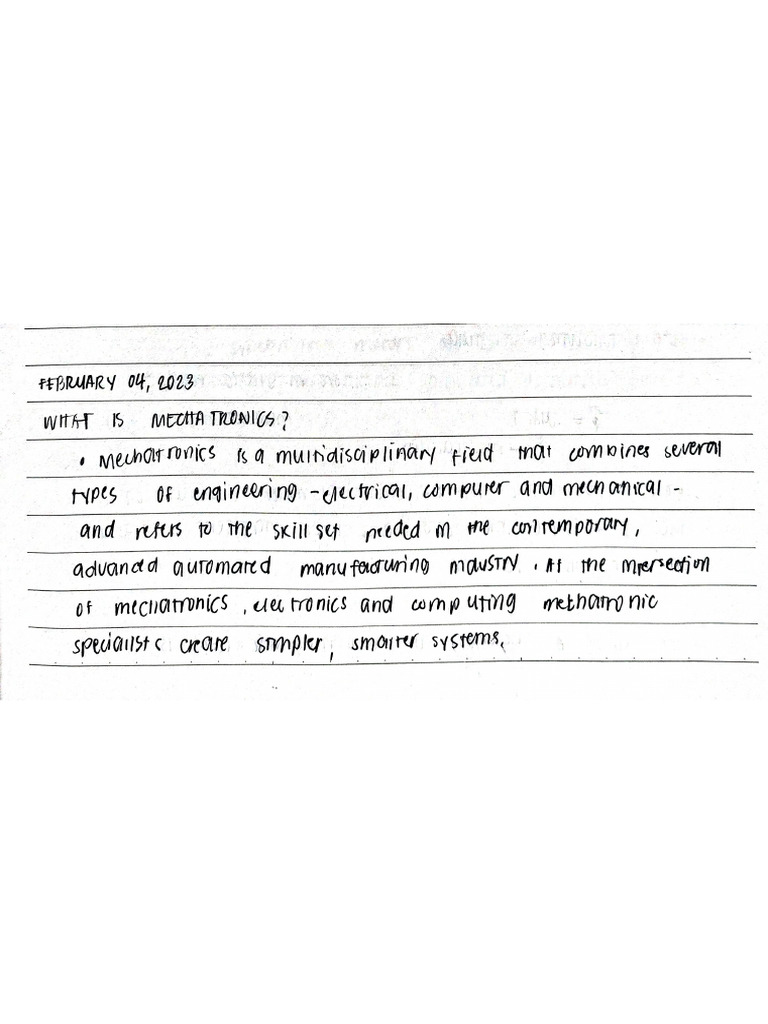 FEBRUARY 04, 2023
WHAT IS MECHATRONICS?
• Mechatronics is a multidisciplinary field that combines several
types of engineering - electrical, computer and mechanical -
and refers to the skill set needed in the contemporary,
advanced automated manufacturing industry. At the intersection
of mechatronics, electronics and computing methatronic
specialists create simpler, smarter systems.